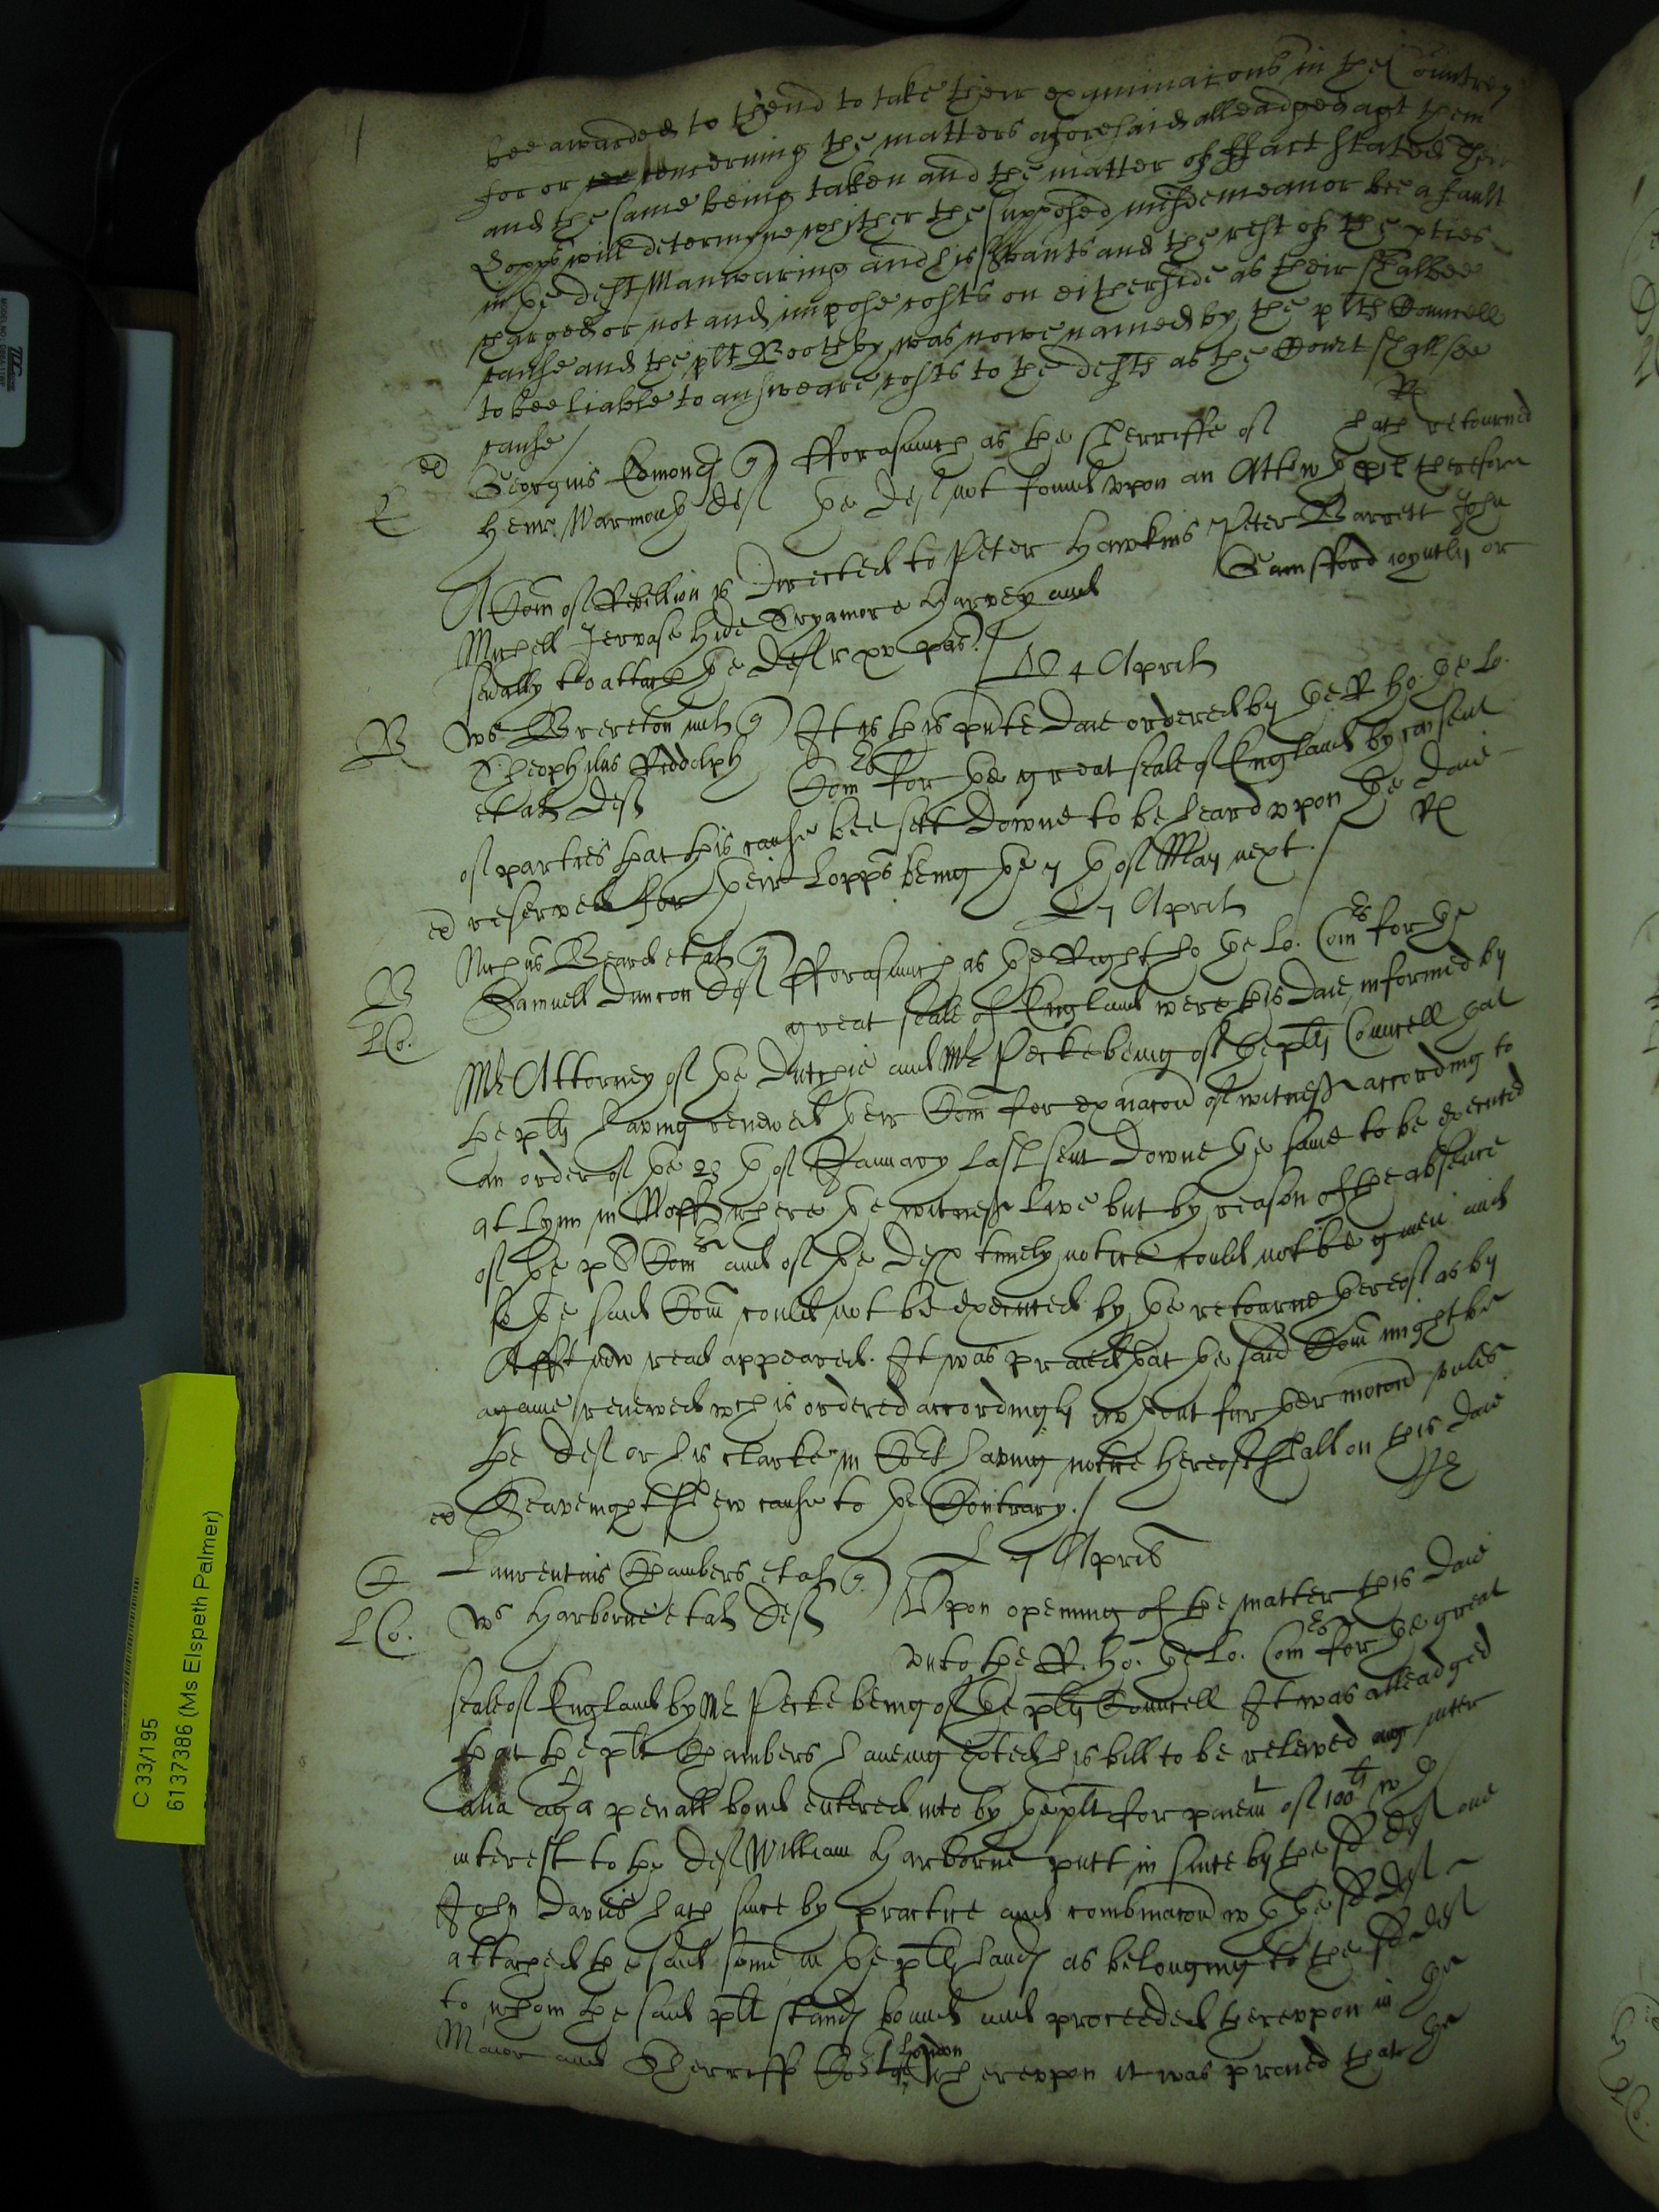 bee awarded to thend to take their examinacons in the Countrey
for or concerning the matters aforesaid alleadged agt them
and the same being taken and the matter of ffact stated their
Lopps will determyne whither the supposed misdemeanor bee a fault
in the deft Manwaring and his servants and the rest of the pties
charged or not and impose costs on either side as their shalbee
cause and the plt Boothby was nowe named by the plts Counsell
to bee liable to answeare costs to the defts as the Court shall see
cause /
Rx
ed
Georgius Edmonds q fforasmuch as the Sherriffe of hath retourned
E
Henr Warmouth def the def not found upon an Attw th therefore
A Com of Rebellion is directed to Peter Hawkins Peter Barrett John
Michell Jervase Hide Bryamore Harvey and Gainsfford ioyntly or
sevally to attach the def
4 April
B
Ws Brereton mil q It is this pnte daie ordered by the R ho: the Lo.
Theophilus Biddolph Com rs for the great seale of England by consent
et al def
of parties that this cause bee sett downe to be heard upon the daie
ed reserved for their Lopps being the 7 th of May next. / Rx
7 April
B
Nichus Beard et al q fforasmuch as the Right ho the Lo. Com rs for the
LCo.
Samuell Duncon def great seale of England were this daie informed by
Mr Attorney of the Dutchie and Mr Pecke being of the plts Councell that
the plts having renewed their Com for exnacon of witness according to
an order of the 23 th of January last sent downe the same to be executed
at Lynn in Norff where the witness live but by reason of the absence
of the pd Com rs and of the def timely notice could not be given and
so the said Com could not be executed by the retourne thereof as by
Afft now read appeared. It was praied that the said Com might be
againe renewed wch is ordered accordingly without further mocon unles
the def or his clarke in Cort having notice hereof shall on this daie
ed Seavenight shew cause to the Contrary. /
7 April
C
Laurentius Chambers et al q Upon opening of the matter this daie
LCo.
Ws Harborne et al def unto the R. ho: the Lo. Com rs for the great
seale of England by Mr Pecke being of the plts Councell It was alleadged
that the plt Chambers haveing exted his bill to be releived inter
alia agt a penall bond entered into by the plt for paiemt of 100 li with
interest to the def William Harborne putt in suite by the sd def one
John Davies hath since by practice and combinacon with the sd def
attached the said some in the plts hands as belonging to the sd def
to whom the said plt stands bound and proceeded thereupon in the
Maior and Sherriffs Cort London whereupon it was praied that the
C 33/195
6137386 (Ms Elspeth Palmer)